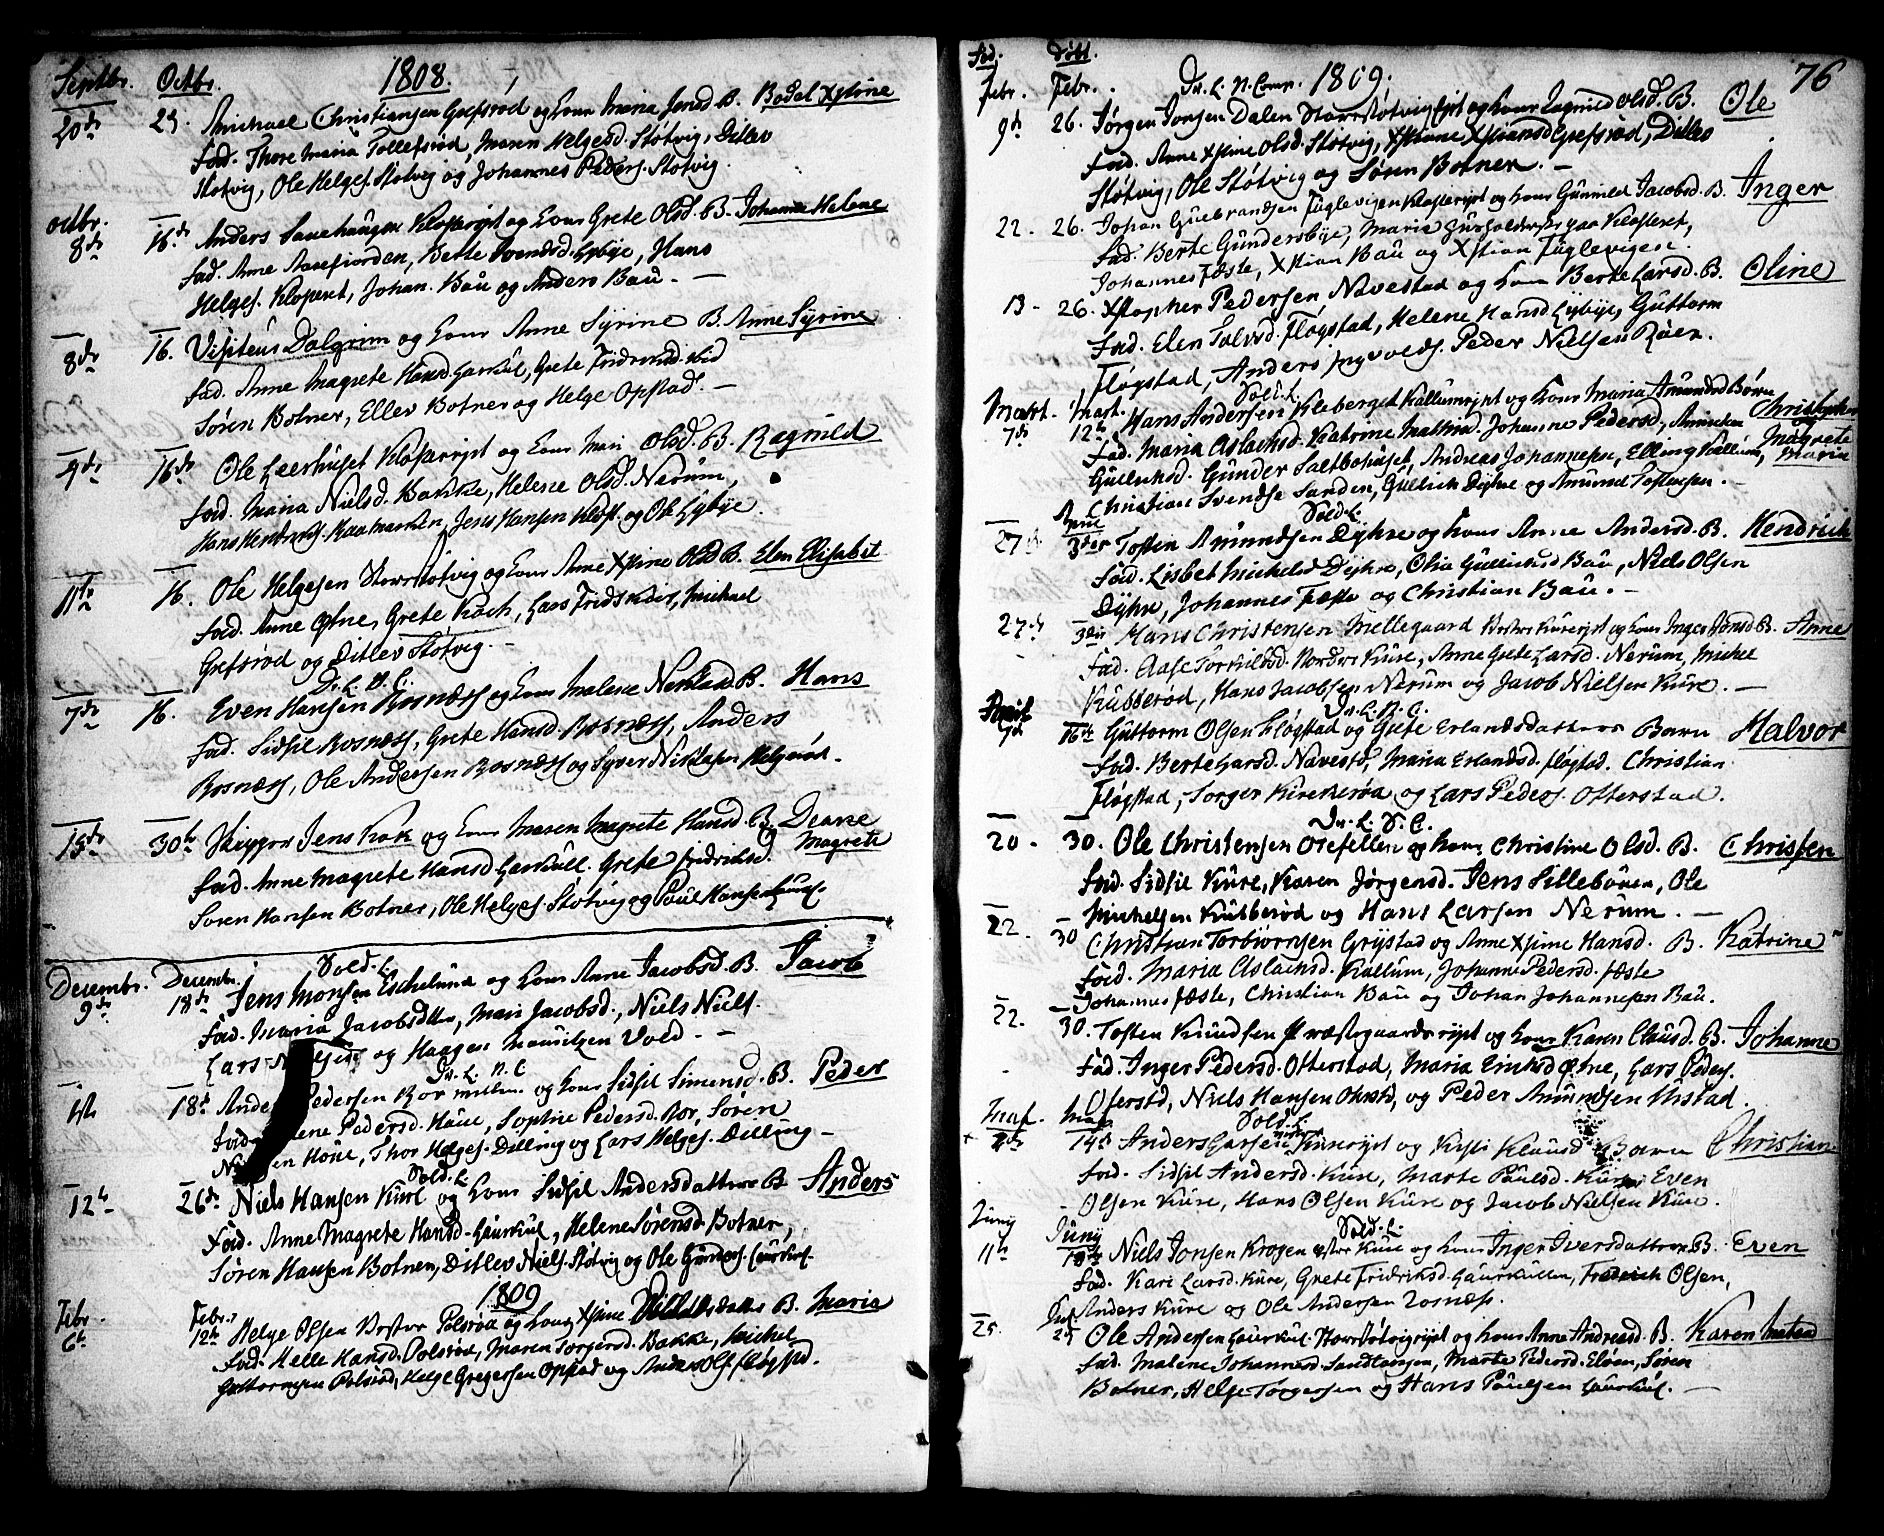 Septbr. Octbr. 1808.
20de 29. Michael Christiansen Grefsrød og hans Maria Jensd. B. Bodel Xstine
Fad. Thore Maria Tollefsrød, Maren Helgesd. Støtvig, Ditlev
Støtvig, Ole Helges. Støtvig og Johannes Peders. Støtvig.
octbr.
8de 16de Anders Sauehaugen Klosterejet og hans Grete Olsd. B. Johanne Helene
Fad. Anne Aasefjorden, Berte Lybye, Hans
Helges. Klosteret, Johan. Bau og Anders Bau. —
8de 16. Visiteur Dalgrim og hans Anne Syrine B. Anne Syrine
Fad. Anne Magrete Hansd. Laurkul, Grete Fridrichsd.
Søren Botner, Ellev Botner og Helge Opstad. —
9de 16de Ole Leerhuset Klosterejet og hans Mari Olsd. B. Ragnild
Fad. Maria Nielsd. Bakke, Helene Olsd. Nerum,
Hans Hendrichs. Kaamarken, Jens Hansen Klost. og Ole Lybye.
11te 16. Ole Helgesen Storestøtvig og hans Anne Xstine Olsd. B. Elen Elisabet
Fad. Anne Østne, Grete Koch, Lars Frids. Michael
Grefsrød og Ditlev Støtvig. —
D. L. V. C.
7de 16. Even Hansen Rosnæss og hans Malene B. Hans
Fad. Sidsil Rosnæss, Grete Hansd. Rosnæss, Anders
Rosnæss, Ole Andersen Rosnæss og Syver Helgerød.
15de 30te Skipper Jens Kok og hans Maren Magrete Hansd. B. Deane
Magrete
Fad. Anne Magrete Hansd. Laurkull. Grete Fridriksd.
Søren Hansen Botner, Ole Helges. Støtvig og Paul Hansen
Decembr. Decembr. Sold. L.
9de 18de Jens Monsen Eschelund og hans Anne Jacobsd. B. Jacob
Fad. Maria Jacobsdtter, Mari Jacobsd., Niels Niels.
Lars og Haagen Mauritzen Vold. —
D. L. N. C
1ste 18de Pedersen Rør og hans Sidsil Simensd. B. Peder
Fad. Pedersd. Haue, Sophie Pedersd. Rør, Søren
Haue, Thor Helges. Dilling og Lars Helges. Dilling —
Sold. L.
12te 26de Niels Hansen Kure og hans Sidsil Andersdatter B. Anders
Fad. Anne Magrete Hansd. Laurkul, Helene Sørensd. Botner,
Søren Hansen Botner, Ditlev Niels. Støtvig og Ole Gunders. Laurkul.
1809
Febr. Febr.
6te 12te Helge Olsen Vestre Polsrød og hans Xstine B. Maria
Fad. Helle Hansd. Polsrød, Maren Torgersd. Bakke, Michel
Guttormsen Polsrød, Helge Gregersen Opstad og Anders Ols. Fløgstd.
76
Fød. Døbt.
Febr. Febr. D. L. N. Comp. 1809.
9de 26. Jørgen Jonsen Dalen Storestøtvigejet og hans Ragnild Olsd. B. Ole
Fad. Anne Xstine Olsd. Støtvig, Xstiane Xstiansd. Grefsrød, Ditlev
Støtvig, Ole Støtvig og Søren Botner. —
22. 26. Johan Guebrandsen Fuglevigen Klosterejet og hans Gunnild Jacobsd. B. Inger
Fad. Berte Gundersbye, Maria Huusholderske paa Klosteret,
Johannes Fæste, Xstian Bau og Xstian Fuglevigen.
13 — 26. Xstopher Pedersen Navestad og hans Berte Larsd. B. Oline
Fad. Elen Fløgstad, Helene Hansd. Lybye, Guttorm
Fløgstad, Anders Ingvolds. Peder Nielsen Råer.
Mart. Mart. Sold. L.
7de 12te Hans Andersen Kleberget Kallumejet og hans Maria Amundsd. Børn Christopher
Magrete
Maria
Fad. Maria Aslachsd. Katrine Johanne Pedersd.,
Gulliksd. Gunder Saltbohuset, Andreas Johannesen, Elling Kallum,
Christian Svendse Sanden, Gullich Dyhre og Amund Tostensen. —
Sold. L.
27de 3die Tosten Amundsen Dyhre og hans Anne Andersd. B. Hendrich
Fad. Lisbet Michelsd. Dyhre, Olia Gullichsd. Bau, Niels Olsen
Dyhre, Johannes Fæste og Christian Bau. —
27de 3die Hans Christensen Mellegaard Vestre Kureejet og hans Inger Jonsd. B. Anne
Fad. Aase Torkildsd. Nordre Kure, Anne Grete Larsd. Nerum, Michel
Kubberød, Hans Jacobsen Nerum og Jacob Nielsen Kure. —
April D. L. N. C.
16de Guttorm Olsen Fløgstad og Grete Erlandsdatters Barn Halvor
Fad. Berte Larsd. Navestd, Maria Erlandsd. Fløgstad. Christian
Fløgstad, Torger Kirkerød og Lars Peders. Otterstad.
D. L. N. C.
20 — 30. Ole Christensen Orefellen og hans Christine Olsd. B. Christen
Fad. Sidsil Kure, Karen Jørgensd. Jens Sillebauen, Ole
Michelsen Kubberød og Hans Larsen Nerum. —
22. 30 Christian Torbiørnsen Grystad og Anne Xstine Hansd. B. Katrine
Fad. Maria Aslachsd. Kallum, Johanne Pedersd. Fæste
Johannes Fæste, Christian Bau og Johan Johannesen Bau.
22. 30. Tosten Knudsen Præstegaardsejet og hans Karen Clausd. B. Johanne
Fad. Inger Pedersd. Otterstad, Maria Østne, Lars Peders.
Otterstd, Niels Hansen og Peder Amundsen
Maj. Maj. Sold. L.
14de Anders Larsen Kureejet og Kisti Klausd. Barn Christian
Fad. Sidsil Andersd. Kure, Marte Paulsd. Kure, Even
Olsen Kure, Hans Olsen Kure og Jacob Nielsen Kure.
Juny Juny Sold. L.
11te Niels Jonsen Krogen Kure og hans Inger Iversdatter B. Even
Fad. Kari Larsd. Kure, Grete Fridriksd. Laurkullen, Frederich Olsen,
Anders Kure og Ole Andersen Rosnæss.
25. 25 Ole Andersen Laurkul Storestøtvigejet og hans Anne Andreasd. B. Karen Matea
Fad. Malene Johannesd. Sandtangen, Marte Pedersd. Eløen, Søren
Botner, Helge Torgersen og Hans Paulsen Laurkul. —